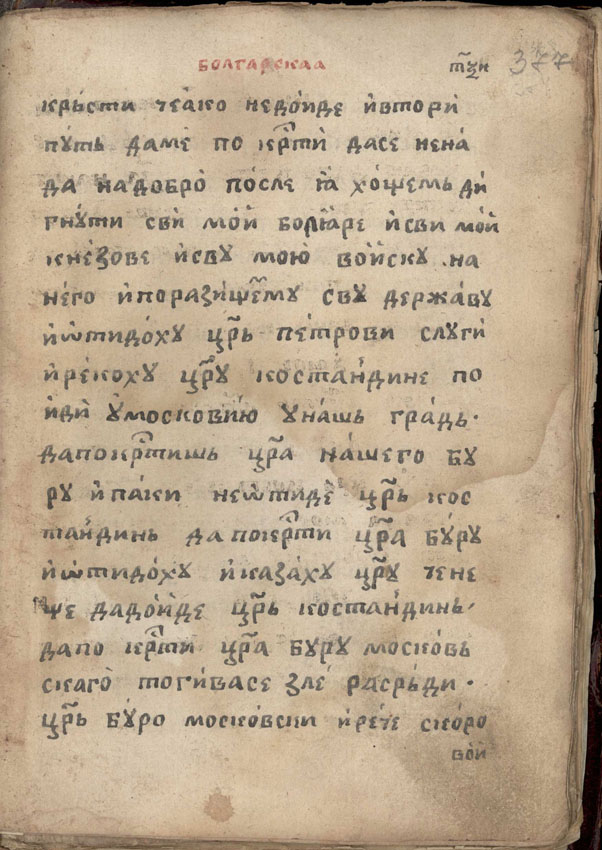 БОЛГАРСКАА
т҃ѯи 377
крьсти чеѧко недо́иде и҆втори
пꙋ́ть даме по кр҃ти̑ дасе нена́
да на́добро̀ по́сле ꙗ҆ хо́щемь ди́
гнꙋ́ти сви̑ мои̑ болгаре и҆сви мои̑
кнезове и҆свꙋ мою̀ воискꙋ на
него и҆порази́ще́мꙋ свꙋ держа́вꙋ
и҆ѿтидо́хꙋ ц҃рь пе́трови слꙋги̑
и҆реко́хꙋ ц҃рꙋ коста́ндине по
и҆ди̑ ꙋ҆московию̀ ꙋна́шь гра́дь·
дапокр҃тишь ц҃ра на́шего бꙋ
рꙋ и҆па́ки неѿтиде ц҃рь кос
та́ндинь да покр҃ти ц҃ра бꙋ́рꙋ
и҆ѿтидо́хꙋ и҆каза́хꙋ ц҃рꙋ чене
ще дадо́иде ц҃рь коста́ндинь·
дапо кр҃ти ц҃ра бꙋрꙋ моско́вь
скаго̀ тоги́васе зле́ расрьди·
ц҃рь бꙋ́ро моско́вски и҆рече ско́ро
вои